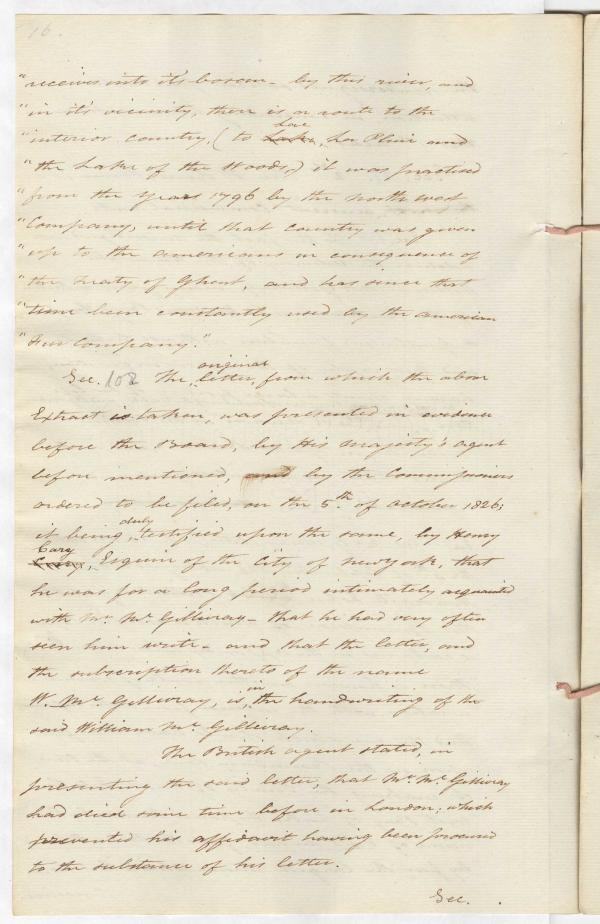 16.
"receives into it's bosom – by this river, and
"in it's vicinity, there is a route to the
"interior country, (to Lac La Pluie and
"the Lake of the Woods,) it was practised
"from the year 1796 by the north west
"Company, until that country was given
"up to the americans in consequence of
"the treaty of Ghent, and has since that
"time been constantly used by the american
"Fur Company."
Sec. 108 The original letter, from which the above
Extract is taken, was presented in evidence
before the Board, by His Majesty's agent
before mentioned, and by the Commissioners
ordered to be filed, on the 5th. of October 1826;
it being duly testified upon the same, by Henry
Cary, Esquire of the City of newyork, that
he was for a long period intimately acquainted
with Mr. Mc. Gillivray – that he had very often
seen him write – and that the letter, and
the subscription thereto of the name
W. Mc. Gillivray, is in the handwriting of the
said William Mc. Gillivray.
The British agent stated, in
presenting the said letter, that Mr. Mc. Gillivray
had died some time before in London; which
prevented his affidavit having been procured
to the substance of his letter.
Sec.